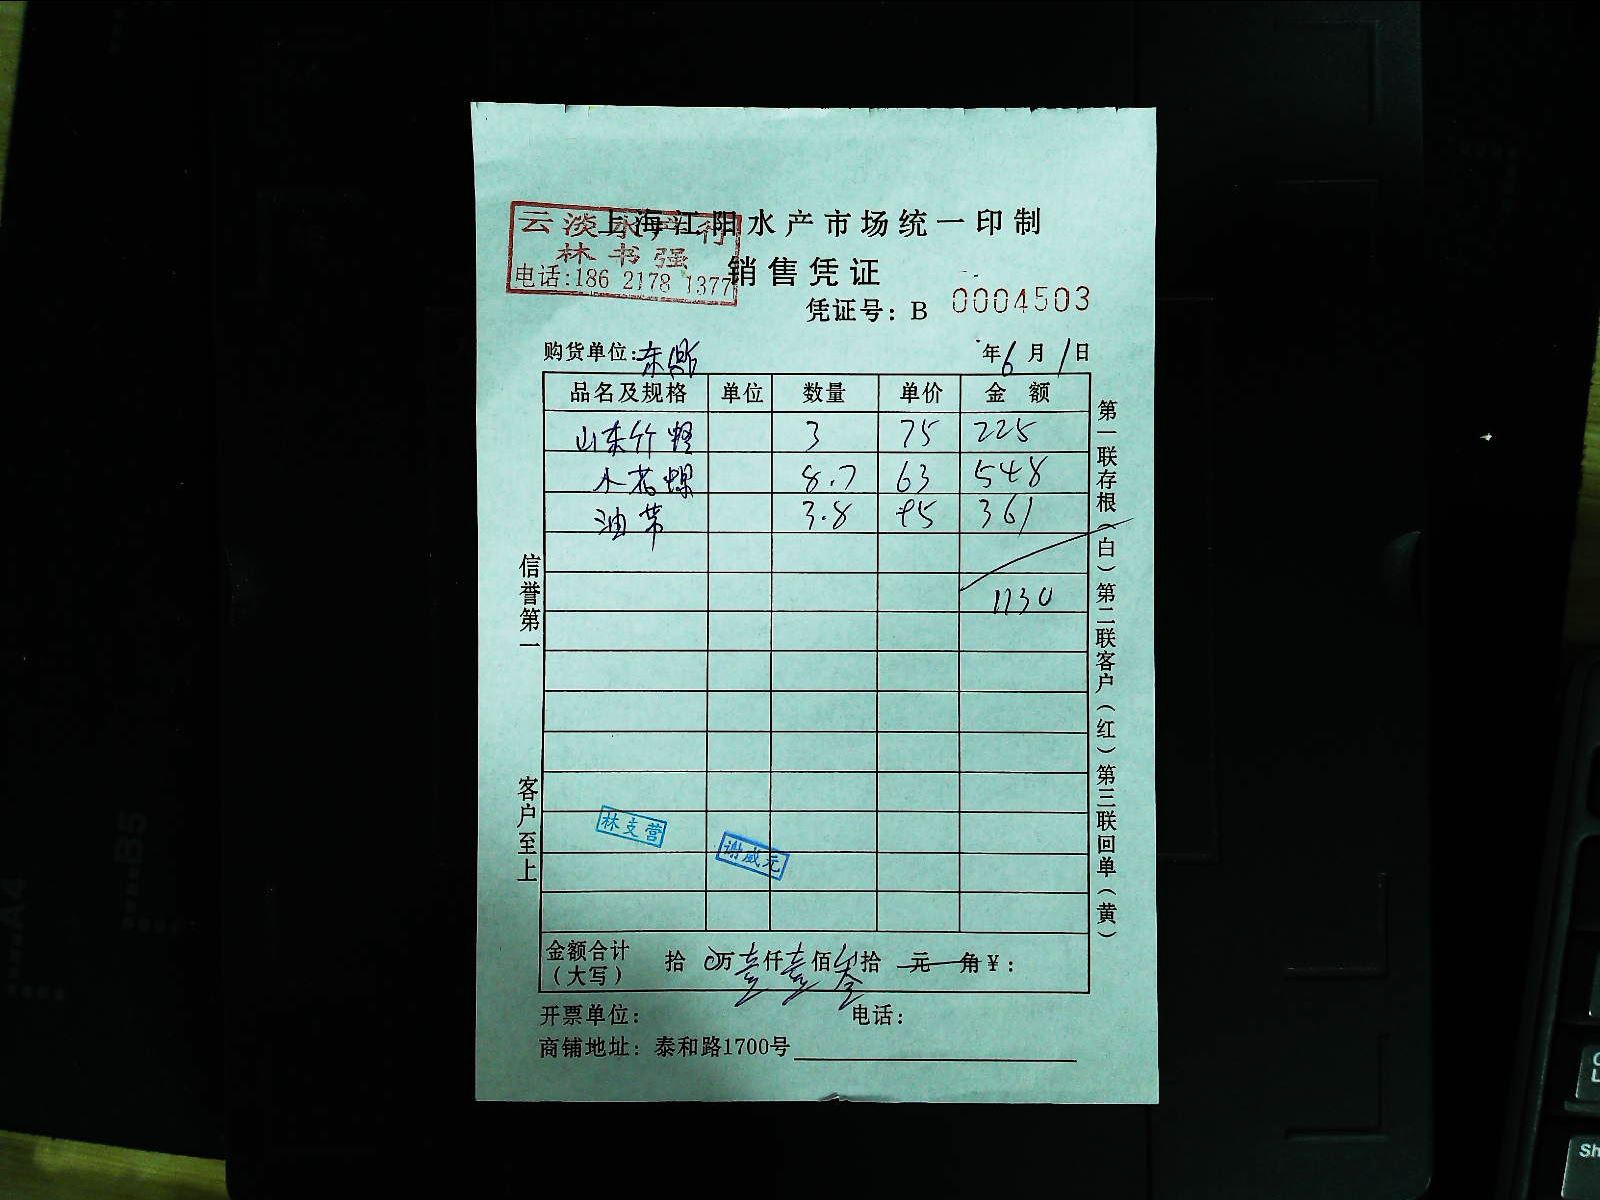 上海江阳水产市场统一印制
云淡水产行
林书强
电话:186 2178 1377
销售凭证
凭证号: B 0004503
购货单位: 东鼎 年 6 月 1 日
品名及规格 单位 数量 单价 金额
山东竹蛏 3 75 225
小花螺 8.7 63 548
油带 3.8 95 361
1130
信誉第一
客户至上
第一联存根(白) 第二联客户(红) 第三联回单(黄)
林支营
谢威元
金额合计 拾 0万壹仟壹佰叁拾 元 角¥:
(大写)
开票单位: 电话:
商铺地址: 泰和路1700号
B5
A4
Sh